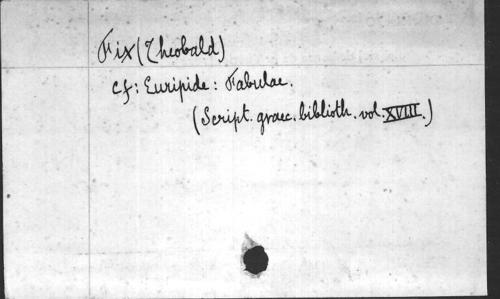 Fix (Theobald)
cf: Euripide: Fabulae.
(Script. graec. biblioth. vol. XVIII.)